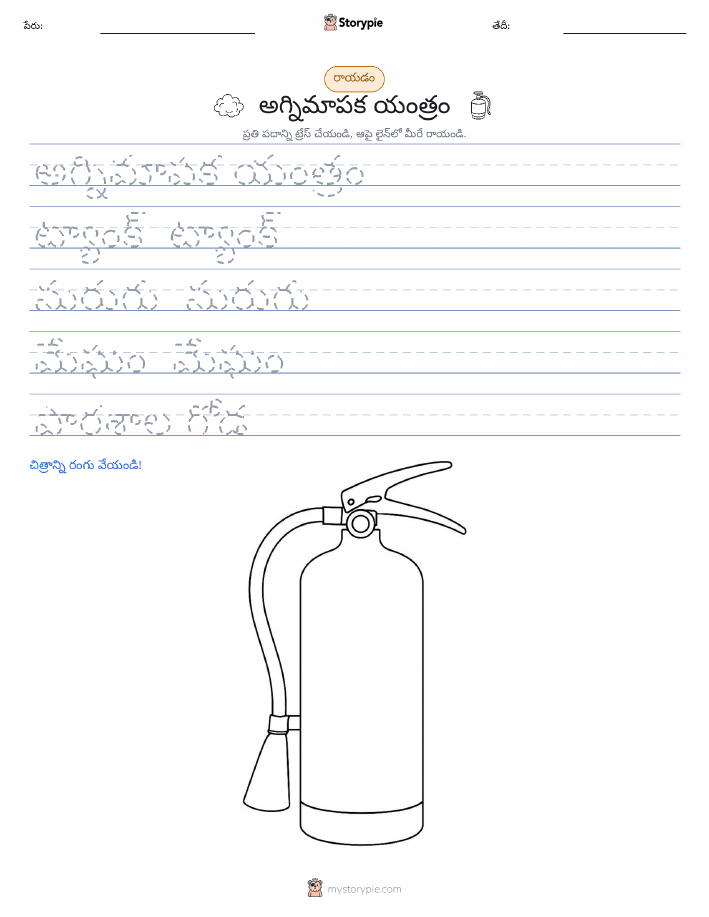 పేరు:
Storypie
తేదీ:
రాయడం
అగ్నిమాపక యంత్రం
ప్రతి పదాన్ని ట్రేస్ చేయండి, ఆపై లైన్‌లో మీరే రాయండి.
అగ్నిమాపక యంత్రం
ట్యాంక్ ట్యాంక్
నురుగు నురుగు
మేఘం మేఘం
పాఠశాల గోడ
చిత్రాన్ని రంగు వేయండి!
mystorypie.com